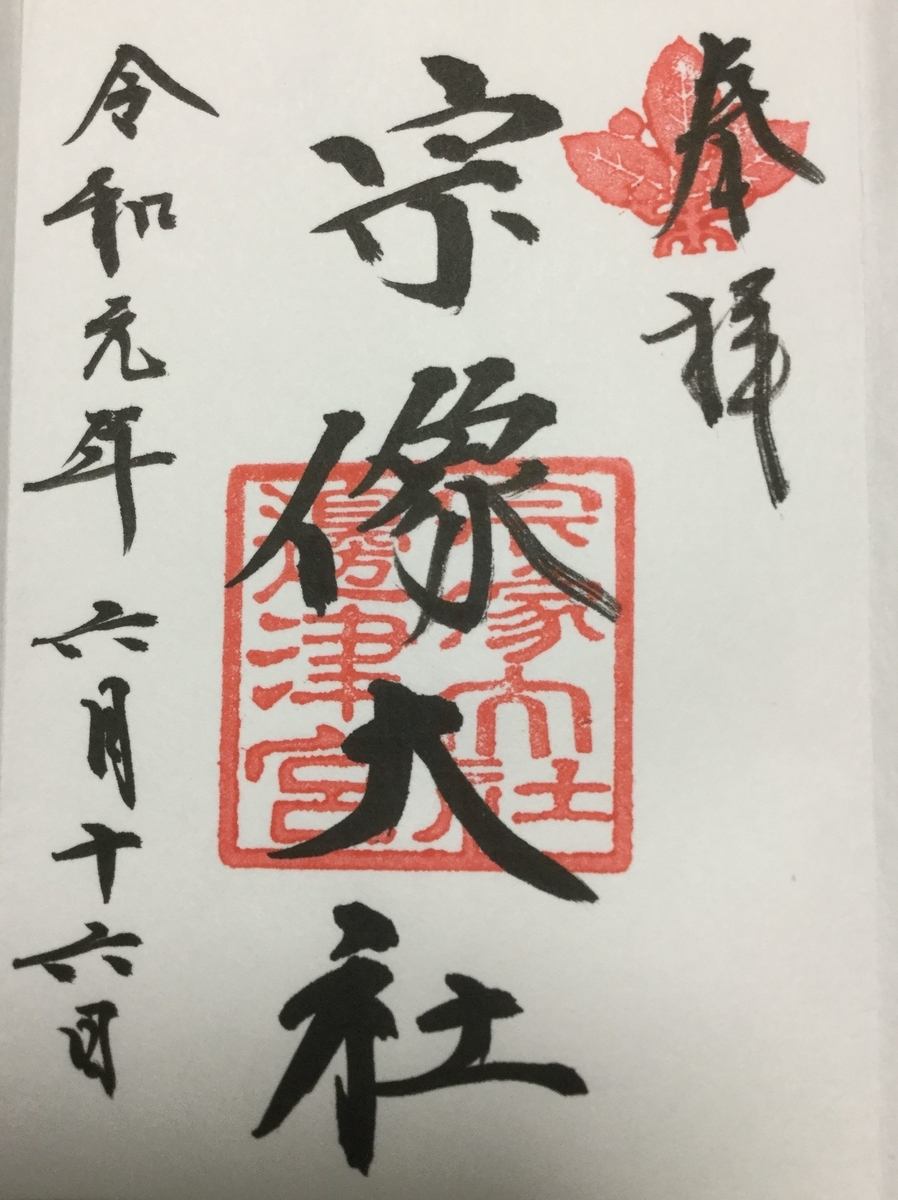 奉拝
宗像大社
宗像大社
邊津宮
令和元年六月十六日